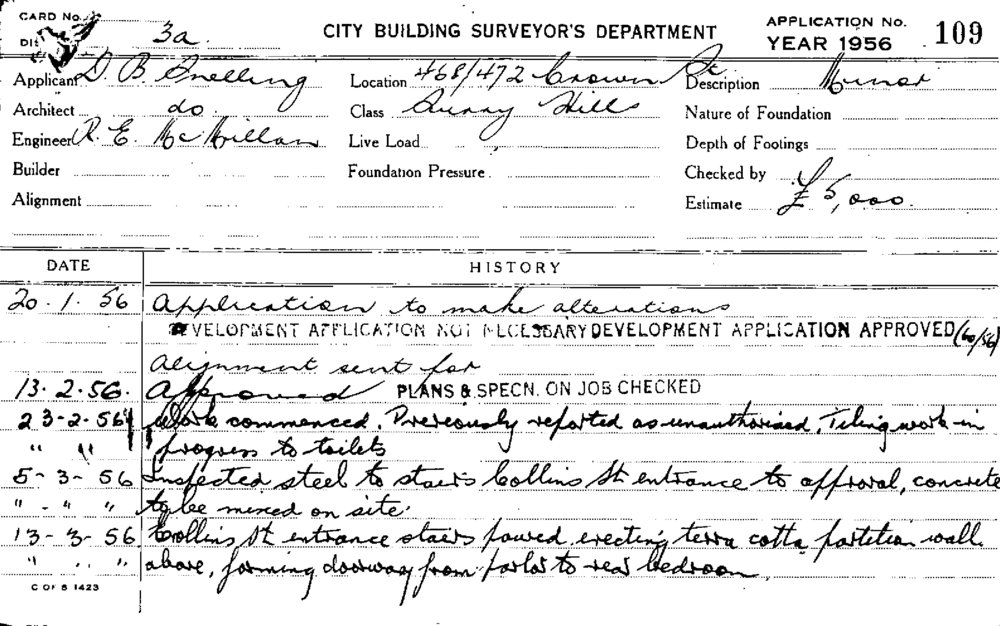 CARD No.
CITY BUILDING SURVEYOR'S DEPARTMENT
APPLICATION No.
109
3a.
YEAR 1956
Applicant D. B. Snelling
Location 468/472 Crown St
Description Minor
Architect do.
Class Surry Hills
Nature of Foundation
Engineer R. E. McMillan
Live Load
Depth of Footings
Builder
Foundation Pressure
Checked by
Alignment
Estimate £ 5,000.
DATE
HISTORY
20.1.56 Application to make alterations
DEVELOPMENT APPLICATION NOT NECESSARY DEVELOPMENT APPLICATION APPROVED (60/56)
Alignment sent for
13.2.56. Approved PLANS & SPECN. ON JOB CHECKED
23-2-56 Work commenced. Previously reported as unauthorised. Tiling work in
" " progress to toilets
5-3-56 Inspected steel to stairs Collins St entrance to approval, concrete
" - " " to be mixed on site.
13-3-56 Collins St entrance stairs poured, erecting terra cotta partition wall
" .. " above, forming doorway from parlor to rear bedroom.
C OF S 1423